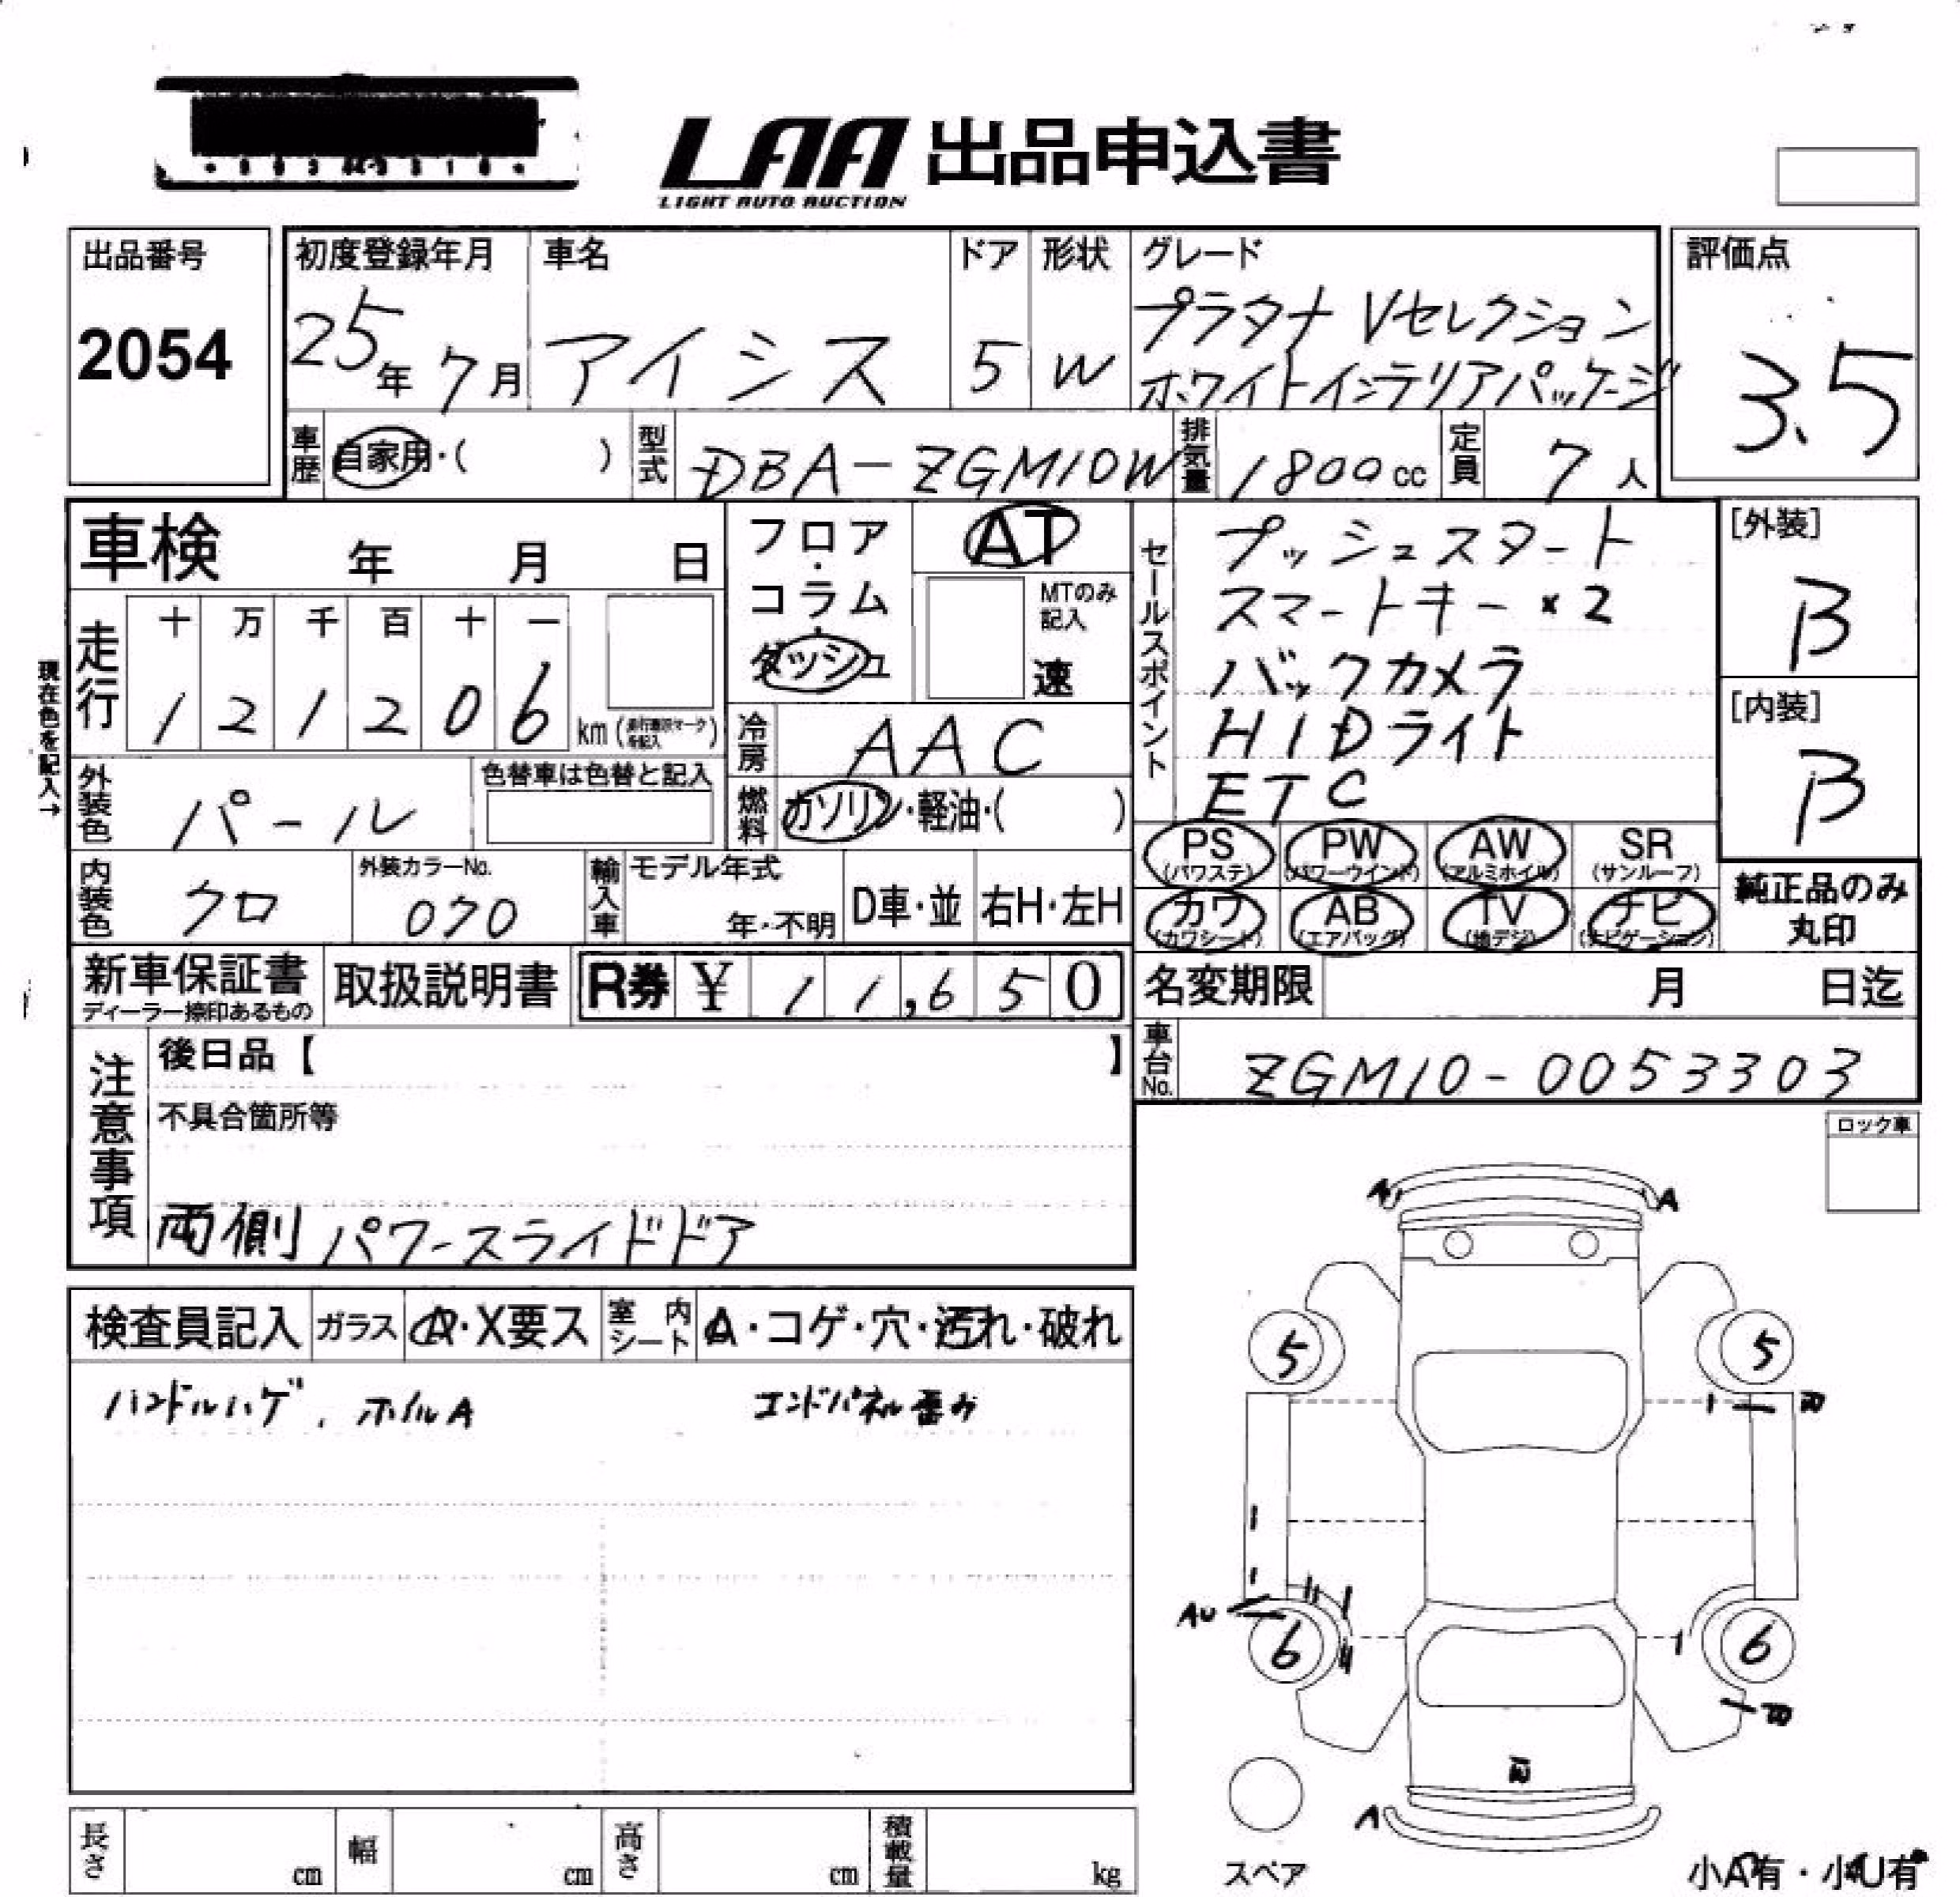 LAA 出品申込書
LIGHT AUTO AUCTION
出品番号
2054
初度登録年月
25年 7月
車名
アイシス
ドア
5
形状
W
グレード
プラタナ Vセレクション
ホワイトインテリアパッケージ
評価点
3.5
車歴
自家用・( )
型式
DBA-ZGM10W
排気量
1800cc
定員
7人
車検 年 月 日
現在色を記入→
走行
十 万 千 百 十 一
1 2 1 2 0 6
km(
)
外装色
パール
色替車は色替と記入
内装色
クロ
外装カラーNo.
070
フロア・
コラム・
ダッシュ
AT
MTのみ
記入
速
冷房
AAC
燃料
ガソリン・軽油・( )
輸入車
モデル年式
年・不明
D車・並
右H・左H
セールスポイント
プッシュスタート
スマートキー×2
バックカメラ
HIDライト
ETC
[外装]
B
[内装]
B
PS
(パワステ)
PW
(パワーウインド)
AW
(アルミホイル)
SR
(サンルーフ)
カワ
(カワシート)
AB
(エアバッグ)
TV
(地デジ)
ナビ
(ナビゲーション)
純正品のみ
丸印
新車保証書
ディーラー捺印あるもの
取扱説明書
R券 ¥ 11,650
名変期限 月 日迄
車台No.
ZGM10-0053303
注意事項
後日品【 】
不具合箇所等
両側パワースライドドア
ロック車
検査員記入
ガラス
A・X要ス
室内シート
A・コゲ・穴・汚れ・破れ
ハンドルハゲ、ホイルA
エンドパネル歪み
A
A
5
5
AU
6
6
A
スペア
小A有・小U有
長さ
cm
幅
cm
高さ
cm
積載量
kg